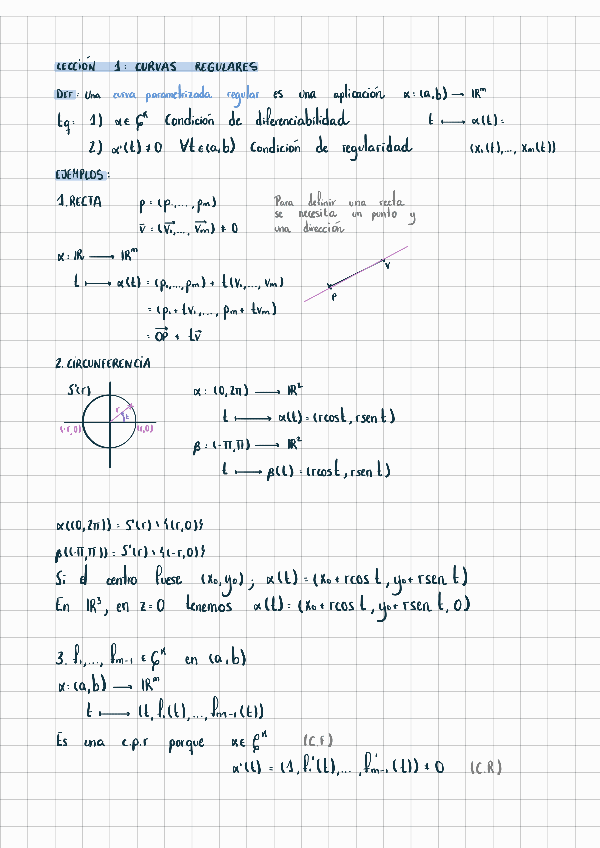 LECCIÓN 1: CURVAS REGULARES
DEF: Una curva parametrizada regular es una aplicación α: (a,b) → ℝᵐ
tq: 1) α ∈ 𝒞ᵏ Condición de diferenciabilidad t ⟼ α(t)=
2) α'(t) ≠ 0 ∀t∈(a,b) Condición de regularidad (x₁(t),..., xₘ(t))
EJEMPLOS:
1. RECTA p = (p₁,..., pₘ) Para definir una recta
se necesita un punto y
v⃗ = (v⃗₁,..., v⃗ₘ) ≠ 0 una dirección
α: ℝ → ℝᵐ
t ⟼ α(t) = (p₁,..., pₘ) + t(v₁,..., vₘ) v
= (p₁+tv₁,..., pₘ+tvₘ) p
= OP⃗ + tv⃗
2. CIRCUNFERENCIA
S¹(r) α: (0,2π) → ℝ²
r t
t ⟼ α(t) = (rcost, rsent)
(-r,0) (r,0)
β: (-π,π) → ℝ²
t ⟼ β(t) = (rcost, rsent)
α((0,2π)) = S¹(r) \ {(r,0)}
β((-π,π)) = S¹(r) \ {(-r,0)}
Si el centro fuese (x₀,y₀); α(t) = (x₀+rcost, y₀+rsent)
En ℝ³, en z=0 tenemos α(t) = (x₀+rcost, y₀+rsent, 0)
3. f₁,..., fₘ₋₁ ∈ 𝒞ᵏ en (a,b)
α: (a,b) → ℝᵐ
t ⟼ (t, f₁(t),..., fₘ₋₁(t))
Es una c.p.r porque α∈𝒞ᵏ (C.F)
α'(t) = (1, f₁'(t),..., f'ₘ₋₁(t)) ≠ 0 (C.R)